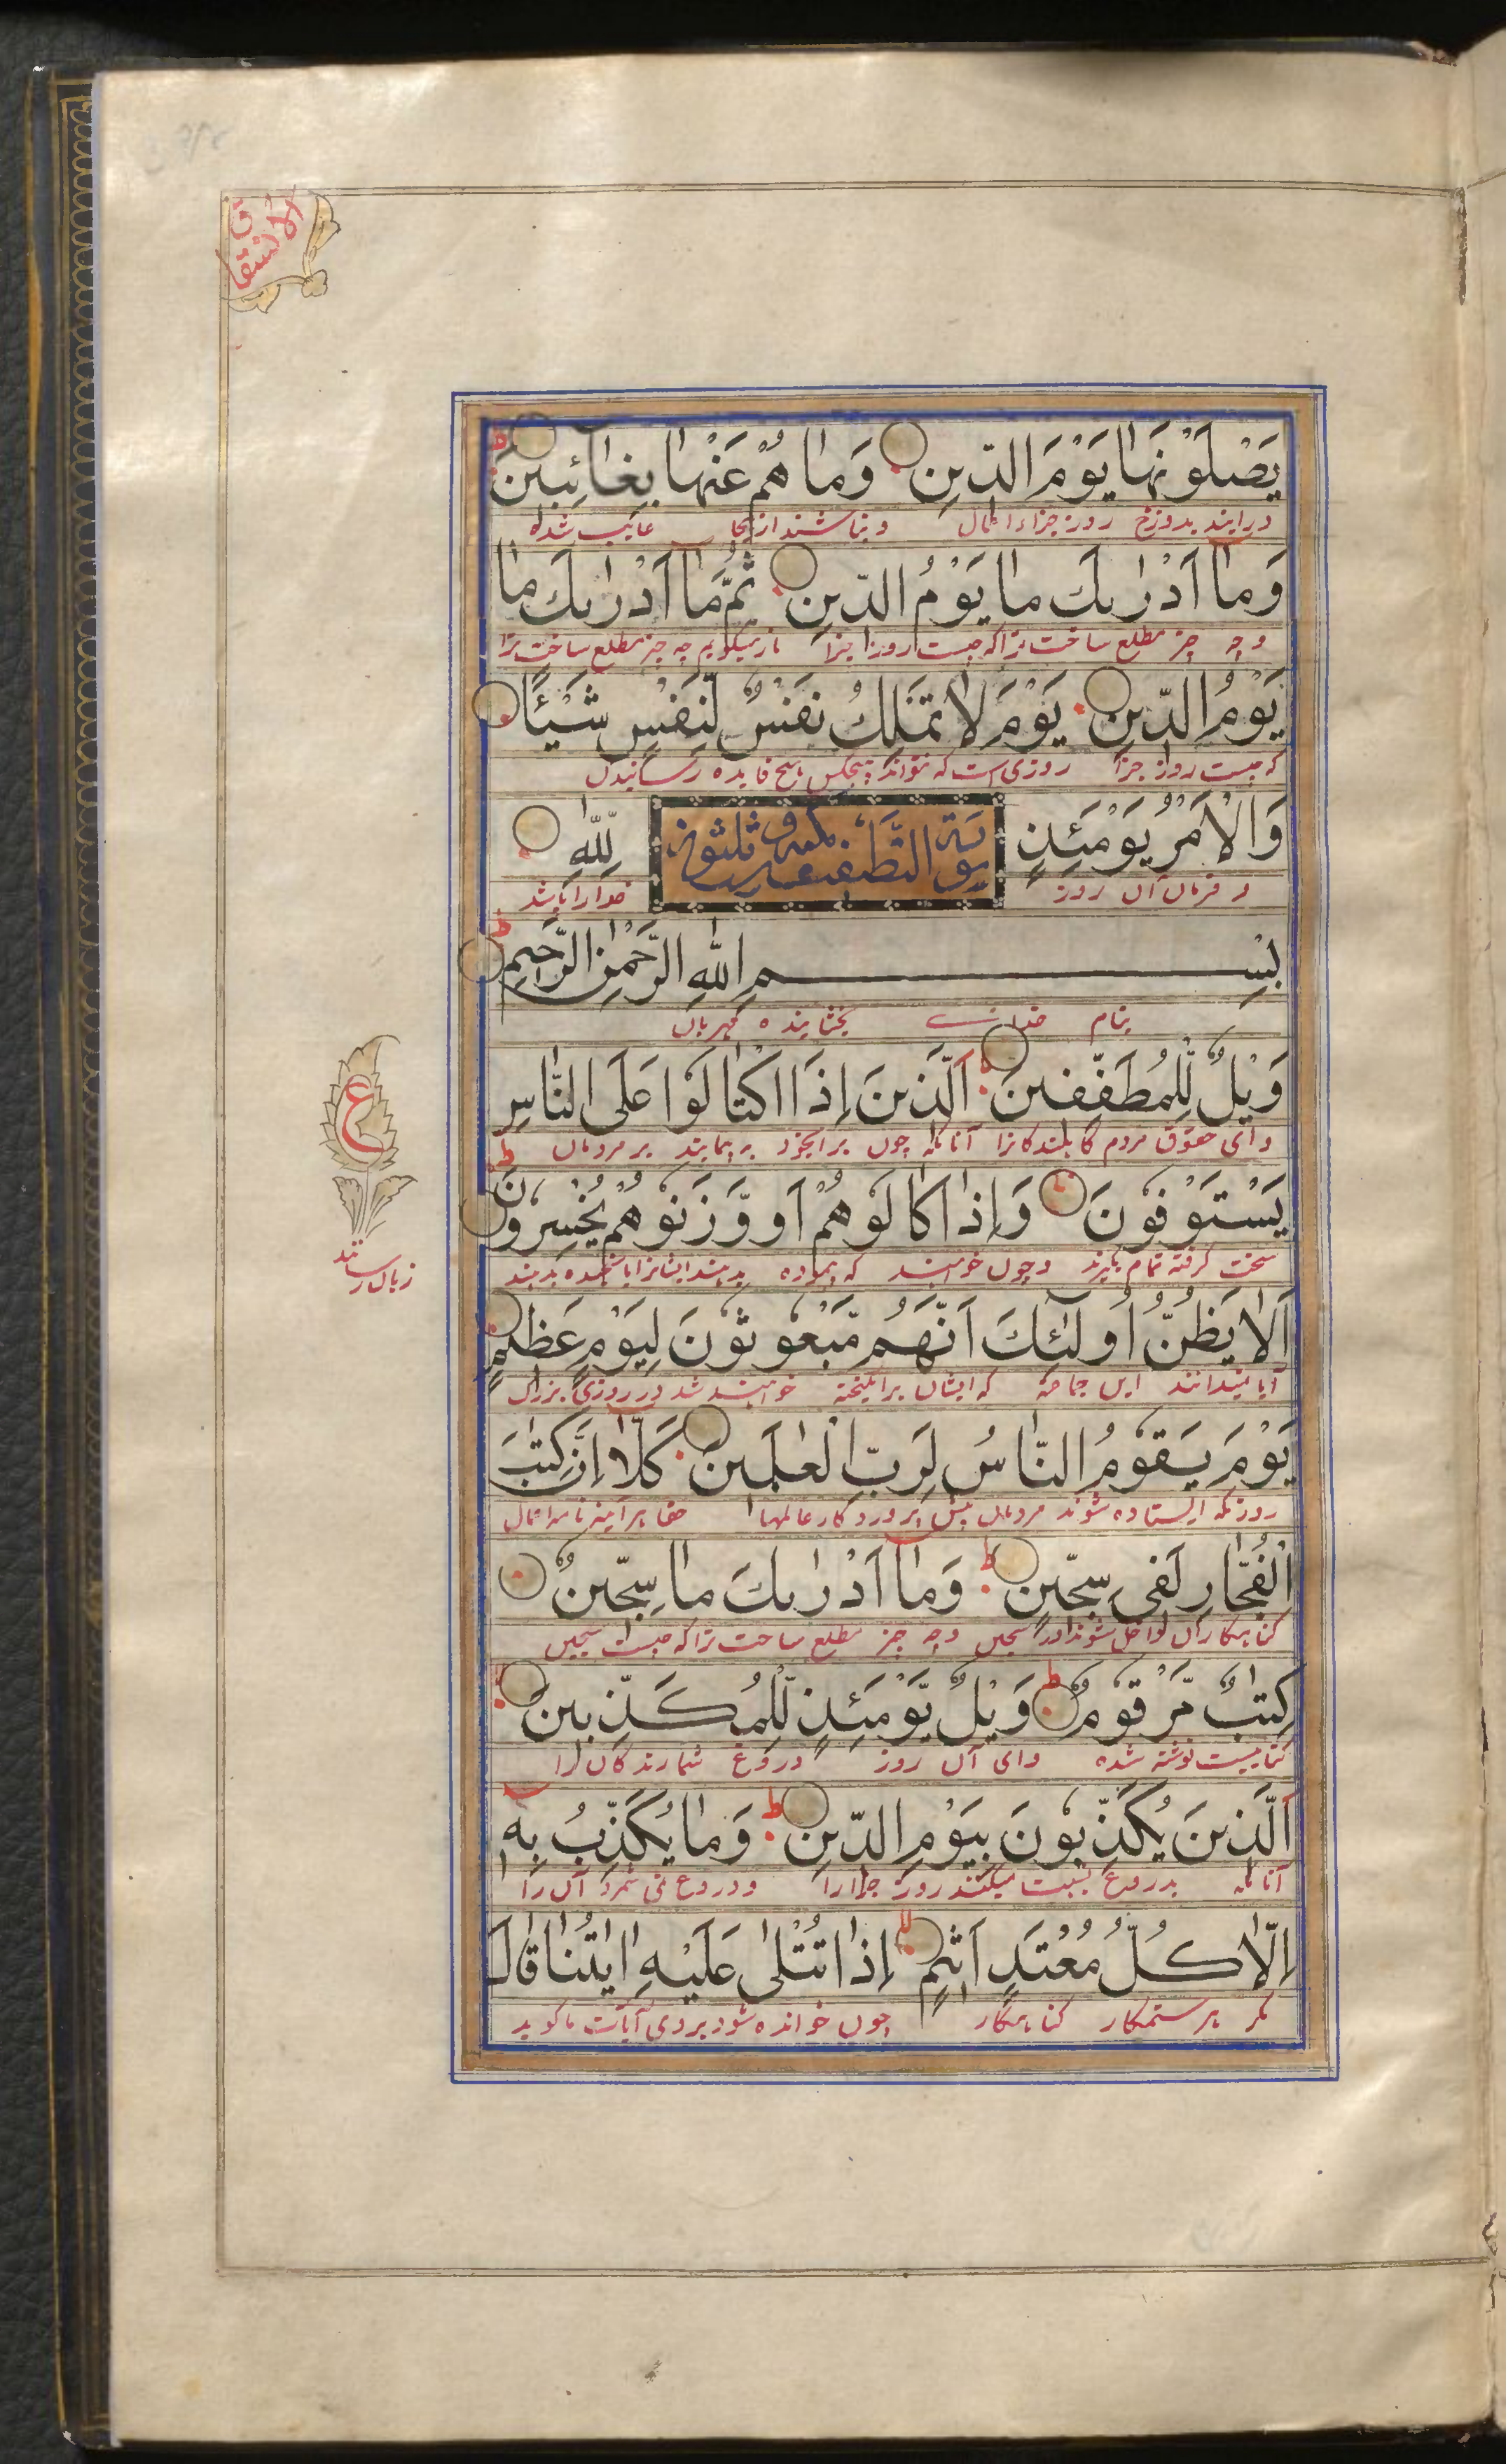 الانشقاق
يَصْلَوْنَهَا يَوْمَ الدِّينِ وَمَا هُمْ عَنْهَا بِغَائِبِينَ
درایند بدوزخ روز جزاء اعمال و نباشند از انجا غایب شده
وَمَا أَدْرٰىكَ مَا يَوْمُ الدِّينِ ثُمَّ مَا أَدْرٰىكَ مَا
و چه چیز مطلع ساخت ترا که چیست روز جزا باز میگویم چه چیز مطلع ساخت ترا
يَوْمُ الدِّينِ يَوْمَ لَا تَمْلِكُ نَفْسٌ لِّنَفْسٍ شَيْئًا
که چیست روز جزا روزی است که نتواند هیچکس بهیچ فایده رسانیدن
وَالْأَمْرُ يَوْمَئِذٍ لِلّٰهِ
سورة التطفیف مکیة و ثلثون
و فرمان آن روز خدا را باشد
بِسْمِ اللهِ الرَّحْمٰنِ الرَّحِيمِ
بنام خدای بخشاینده مهربان
وَيْلٌ لِّلْمُطَفِّفِينَ الَّذِينَ إِذَا اكْتَالُوا عَلَى النَّاسِ
وای حقوق مردم کاهندکانرا آنانکه چون برای خود به پیمایند بر مردمان
يَسْتَوْفُونَ وَإِذَا كَالُوهُمْ أَو وَّزَنُوهُمْ يُخْسِرُونَ
سخت کرفته تمام بکیرند و چون خواهند که پیموده بدهند ایشانرا یا سنجیده بدهند
ع
زیان رسانند
أَلَا يَظُنُّ أُولٰئِكَ أَنَّهُم مَّبْعُوثُونَ لِيَوْمٍ عَظِيمٍ
آیا نمیدانند این جماعه که ایشان برانکیخته خواهند شد در روزی بزرک
يَوْمَ يَقُومُ النَّاسُ لِرَبِّ الْعٰلَمِينَ كَلَّا إِنَّ كِتٰبَ
روزیکه ایستاده شوند مردمان پیش پروردکار عالمها حقا هرآینه نامه اعمال
الْفُجَّارِ لَفِي سِجِّينٍ وَمَا أَدْرٰىكَ مَا سِجِّينٌ
کناهکاران داخل شوند در سجین و چه چیز مطلع ساخت ترا که چیست سجین
كِتٰبٌ مَّرْقُومٌ وَيْلٌ يَّوْمَئِذٍ لِّلْمُكَذِّبِينَ
کتابیست نوشته شده وای آن روز دروغ شمارندکان را
الَّذِينَ يُكَذِّبُونَ بِيَوْمِ الدِّينِ وَمَا يُكَذِّبُ بِهِ
آنانکه بدروغ نسبت میکنند روز جزا را و دروغ نمی شمرد آن را
إِلَّا كُلُّ مُعْتَدٍ أَثِيمٍ إِذَا تُتْلٰى عَلَيْهِ اٰيٰتُنَا قَالَ
مکر هر ستمکار کناهکار چون خوانده شود بروی آیات ما کوید